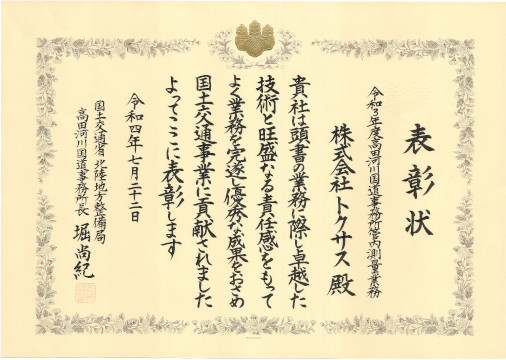 表彰状
令和3年度高田河川国道事務所管内測量業務
株式会社トクサス 殿
貴社は頭書の業務に際し卓越した
技術と旺盛なる責任感をもって
よく業務を完遂し優秀な成果をおさめ
国土交通事業に貢献されました
よってここに表彰します
令和四年七月二十二日
国土交通省 北陸地方整備局
高田河川国道事務所長 堀尚紀